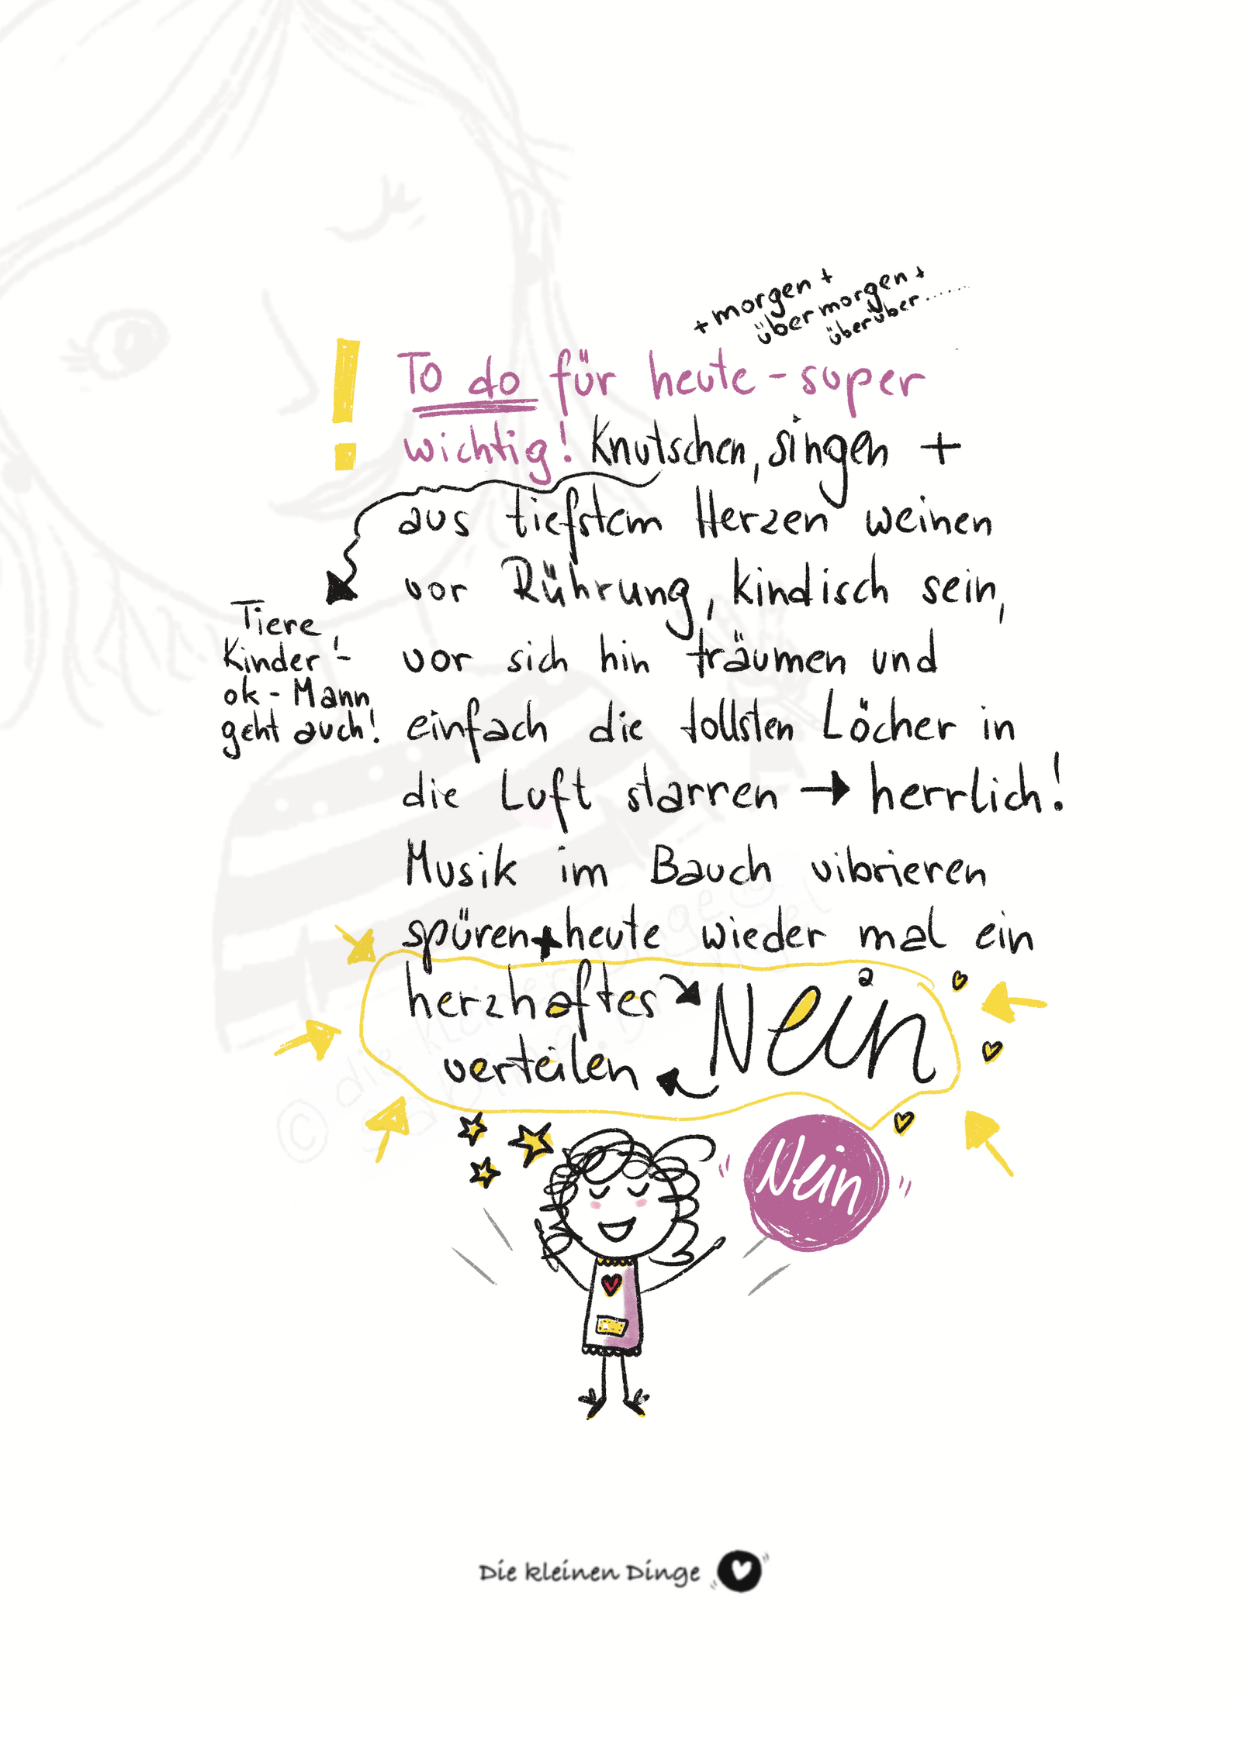 + morgen +
übermorgen +
überüber........
To do für heute - super
wichtig! Knutschen, singen +
aus tiefstem Herzen weinen
vor Rührung, kindisch sein,
vor sich hin träumen und
einfach die tollsten Löcher in
die Luft starren → herrlich!
Musik im Bauch vibrieren
spüren + heute wieder mal ein
herzhaftes Nein
verteilen
Tiere
Kinder -
ok - Mann
geht auch!
Nein
Die kleinen Dinge